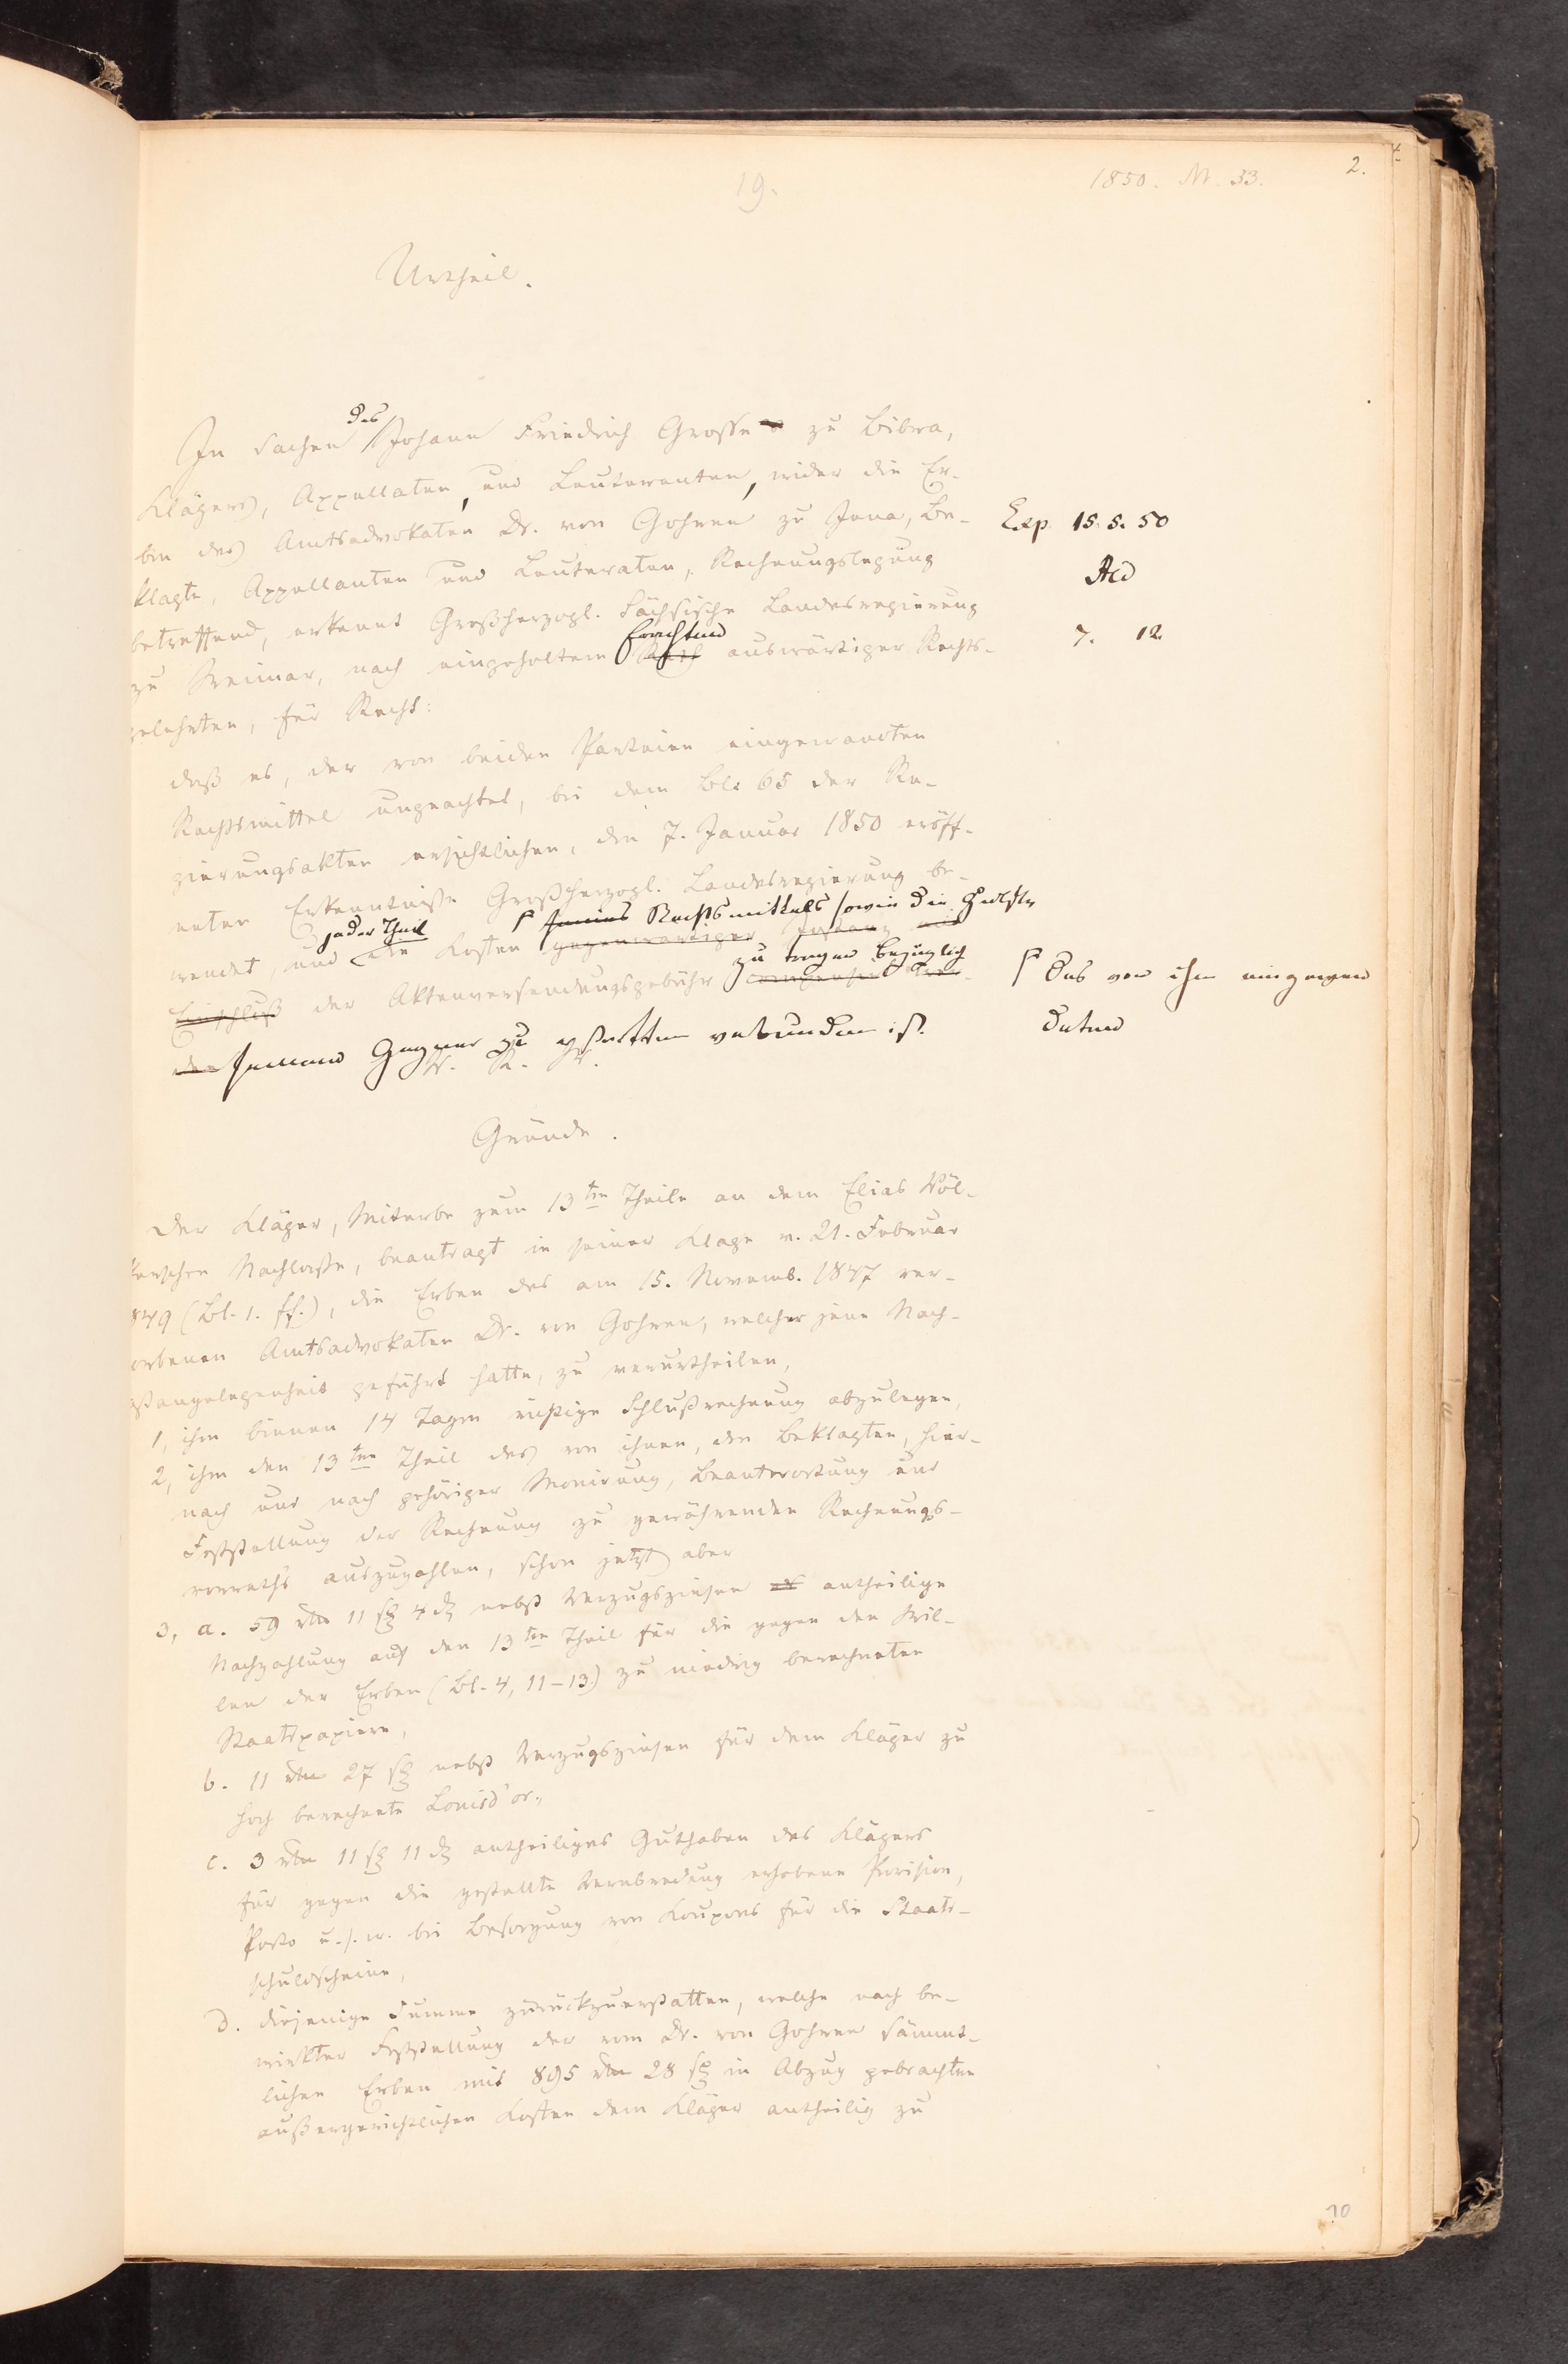 2.
19.
1850. N. 33.
Urtheil.
des
In Sachen Johann Friedrich Grosse zu Bibra,
Klägers, Appellaten, und Leuteranten, wider die Er-
ben des Amtsadvokaten Dr. von Gohren zu Jena, Be-
klagte, Appellanten und Leuteraten, Rechnungslegung
betreffend, erkennt Großherzogl. Sächsische Landesregierung
zu Weimar, nach eingeholtem Rath auswärtiger Rechts-
gelehrten, für Recht:
Exp. 15. 5. 50
7. 12
daß es, der von beiden Parteien eingewandten
Rechtsmittel ungeachtet, bei dem Bl. 65 der Re-
gierungsakten ersichtlichen, den 7. Januar 1850 eröff-
neten Erkenntnisse Großherzogl. Landesregierung be-
jeder Theil Rechtsmittels sowie die Hälfte
wendet, und die Kosten gegenwärtiger Instanz mit
zu tragen bezüglich
Einschluß der Aktenversendungsgebühr
seinem Gegner zu erstatten verbunden ist.
V. R. W.
des von ihm eingewen
deten
Gründe.
Der Kläger, Miterbe zum 13ten Theile an dem Elias Völ-
kerschen Nachlasse, beantragt in seiner Klage v. 21. Februar
1849 (Bl. 1. ff.), die Erben des am 15. Novemb. 1847 ver-
storbenen Amtsadvokaten Dr. von Gohren, welcher jene Nach-
laßangelegenheit geführt hatte, zu verurtheilen,
1, ihm binnen 14 Tagen richtige Schlußrechnung abzulegen,
2, ihm den 13ten Theil des von ihnen, den Beklagten, hier-
nach und nach gehöriger Monirung, Beantwortung und
Feststellung der Rechnung zu gewährenden Rechnungs-
vorraths auszuzahlen, schon jetzt aber
3, a. 59 rtlr 11 sg 4 d nebst Verzugszinsen antheilige
Nachzahlung auf den 13ten Theil für die gegen den Wil-
len der Erben (Bl. 4, 11-13.) zu niedrig berechneten
Staatspapiere,
b. 11 rtlr 27 sg nebst Verzugszinsen für dem Kläger zu
hoch berechnete Louisd'or,
c. 3 rtlr 11 sg 11 d antheiliges Guthaben des Klägers
für gegen die gestellte Verabredung erhobene Provision,
Porto u. s. w. bei Besorgung von Koupons für die Staats-
schuldscheine,
d. diejenige Summe zurückzuerstatten, welche nach be-
wirkter Feststellung der vom Dr. von Gohren sämmt-
lichen Erben mit 895 rtlr 28 sg in Abzug gebrachten
außergerichtlichen Kosten dem Kläger antheilig zu
10